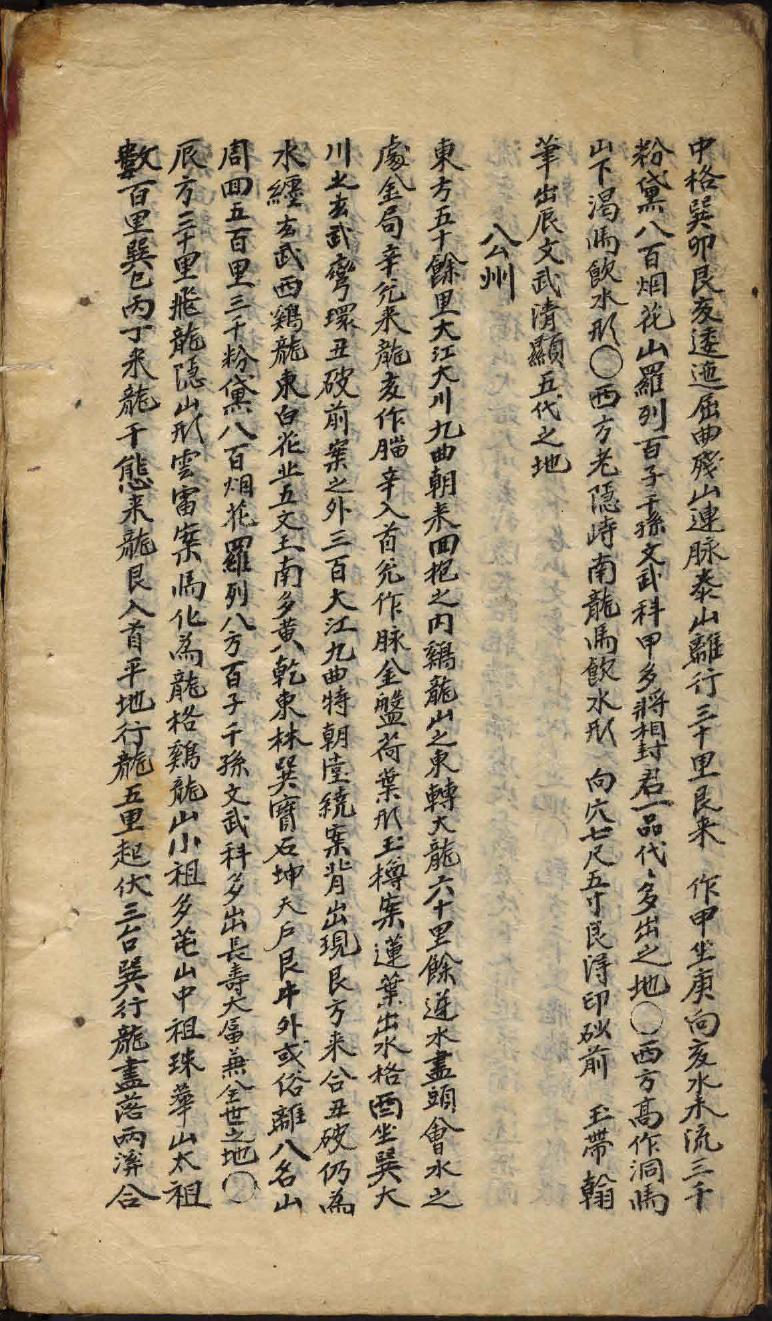 中格巽卯艮亥逶迤屈曲殘山連脉泰山離行三十里艮来 作甲坐庚向亥水未流三千
粉黛八百烟花山羅列百子千孫文武科甲多將相封君一品代〻多出之地〇西方高作洞馬
山下渴馬飲水形〇西方老隱峙南龍馬飲水形 向穴七尺五寸艮淂印砂前 玉帶翰
筆出辰文武清顯五代之地
公州
東方五十餘里大江大川九曲朝来回抱之內鷄龍山之東轉大龍六十里餘逆水盡頭會水之
處金局辛兊来龍亥作腦辛入首兊作脉金盤荷葉形玉樽案蓮葉出水格酉坐巽大
川之玄武彎環丑破前案之外三百大江九曲特朝陸繞案背出現艮方来合丑破仍為
水纏玄武西鷄龍東白花北五文王南多黄乾東林巽寳石坤天戶艮牛外或俗離八名山
周回五百里三千粉黛八百烟花羅列八方百子千孫文武科多出長壽大富兼全世之地〇
辰方三十里飛龍隱山形雲雷案馬化為龍格鷄龍山小祖多芚山中祖珠華山太祖
數百里巽巳丙丁来龍千態来龍艮入首平地行龍五里起伏三台巽行龍盡落兩濟合